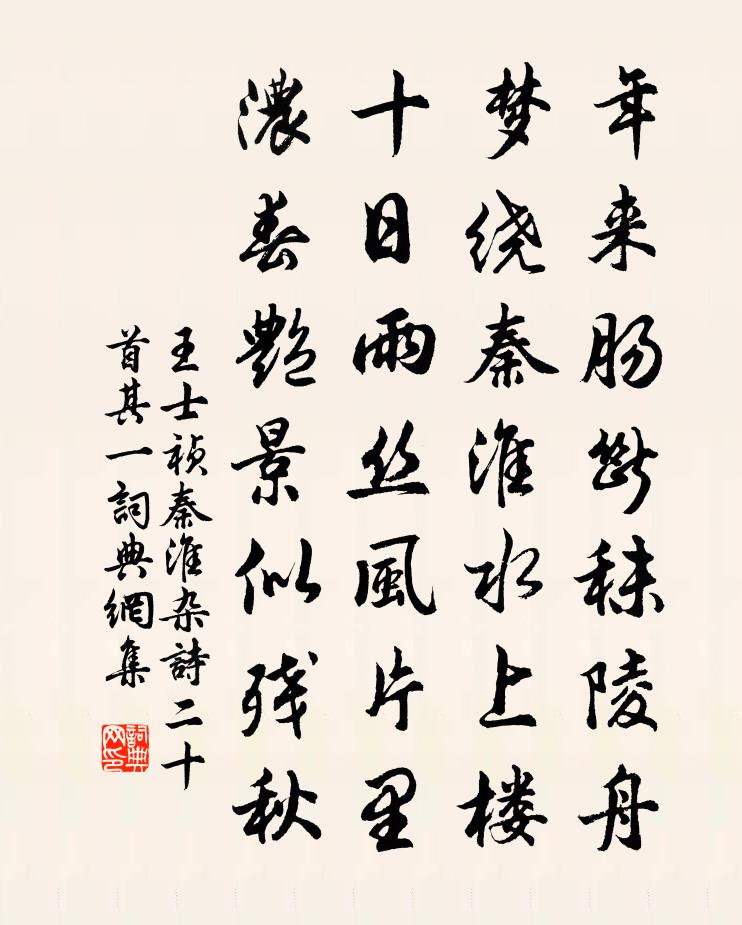 年来肠断秣陵舟
梦绕秦淮水上楼
十日雨丝风片里
浓春艳景似残秋
王士祯秦淮杂诗二十
首其一词典网集
词典网印